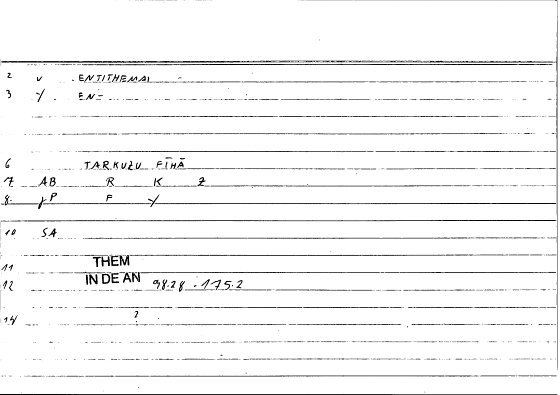 2 v ENTITHEMAI
3 Y EN-
6 TARKUZU FĪHĀ
7 AB R K Z
8. jP F Y
10 SA
11 THEM
IN DE AN
12 98.28 - 175.2
14 ?